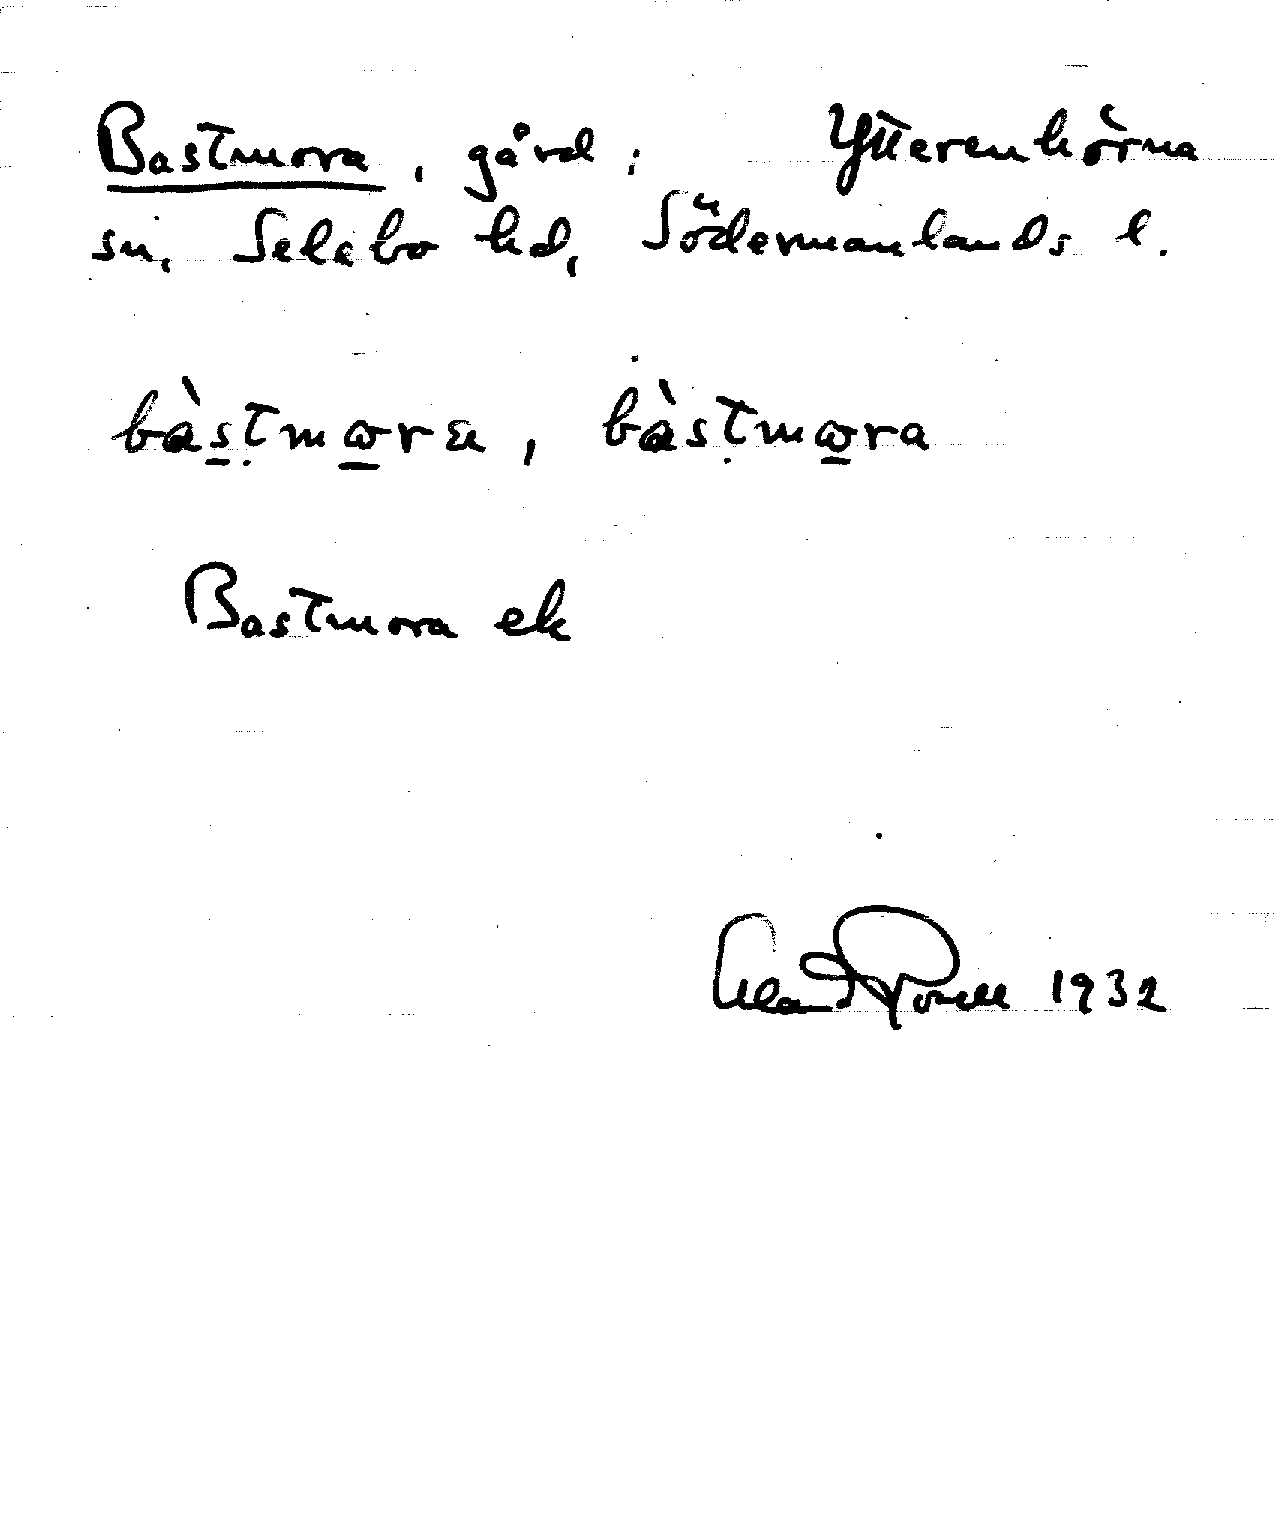 Bastmora, gård, Ytterenhörna
sn, Selebo hd, Södermanlands l.
bàstmωra, bàstmωra
Bastmora ek
1932